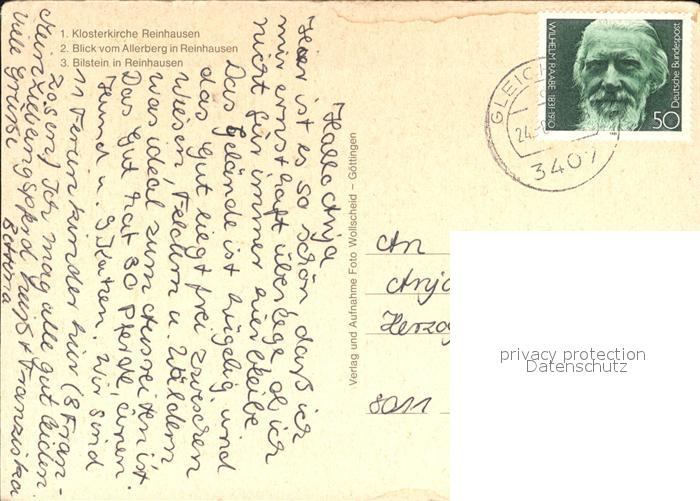 1. Klosterkirche Reinhausen
2. Blick vom Allerberg in Reinhausen
3. Bilstein in Reinhausen
Hallo Anja
Hier ist es so schön, daß ich
mir ernsthaft überlege ob ich
nicht für immer hierbleibe
Das Gelände ist hügelig und
das Gut liegt frei zwischen
Wiesen, Feldern u. Wäldern
was ideal zum Ausreiten ist.
Das Gut hat 30 Pferde, einen
Hund u. 9 Katzen. Wir sind
11 Ferienkinder hier (8 Fran-
zosen) Ich mag alle gut leiden.
Mein Lieblingspferd heißt Franziska
Viele Grüße
Verlag und Aufnahme Foto Wollscheid – Göttingen
WILHELM RAABE 1831-1910
Deutsche Bundespost
50
GLEICH
24.
3407
An
Anja
Herzog
8011
privacy protection
Datenschutz